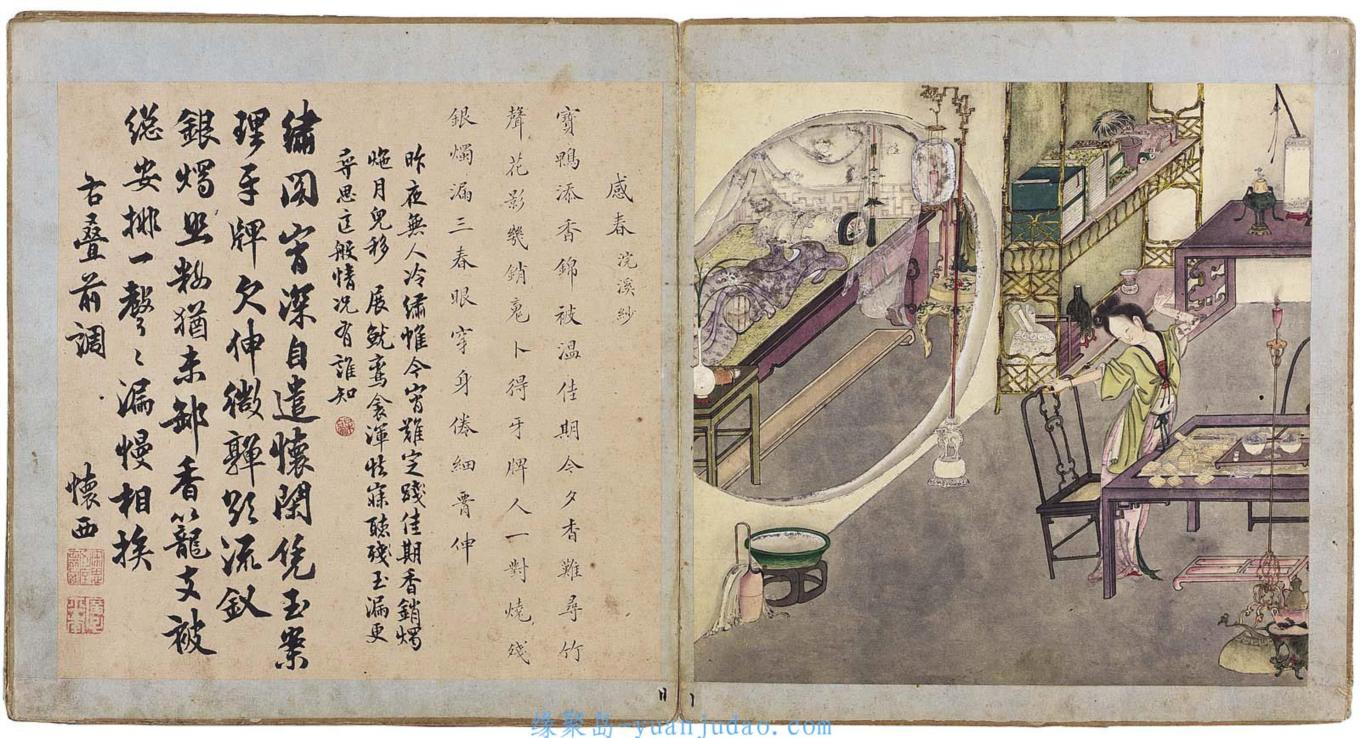 感春 浣溪紗
寶鴨添香錦被溫佳期今夕杳難尋竹
聲花影幾銷魂卜得牙牌人一對燒殘
銀燭漏三春眼穿身倦細伸
昨夜無人冷繡帷今宵難定踐佳期香銷燭
灺月兒移 展鸞衾渾怯寐聽殘玉漏更
尋思這般情況有誰知
繡閣宵深自遣懷閑凭玉案
理牙牌欠伸微嚲流釵
銀燭照猶未卸香籠支被
總安排一聲〻漏慢相挨
右疊前調
懷西
缘聚岛-yuanjudao.com